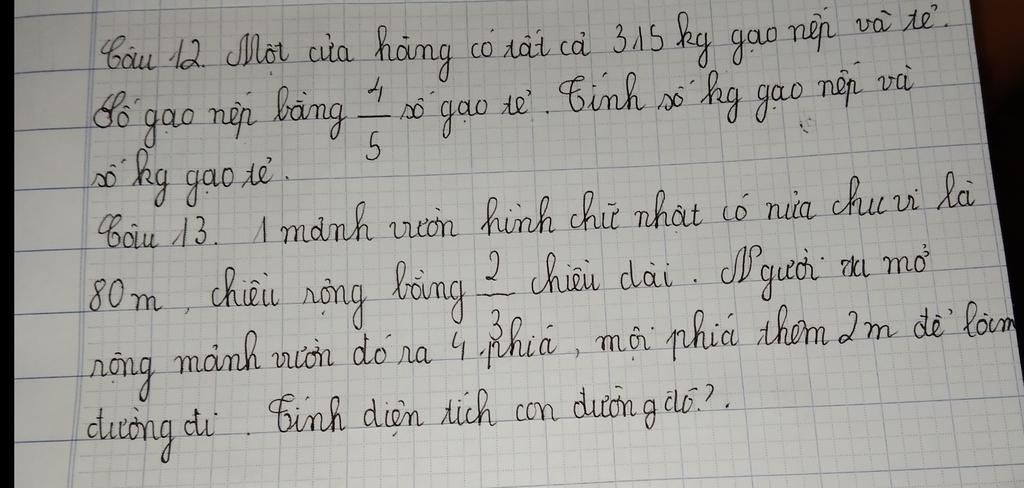 Câu 12. Một cửa hàng có tất cả 315 kg gạo nếp và tẻ.
Số gạo nếp bằng 4/5 số gạo tẻ. Tính số kg gạo nếp và
số kg gạo tẻ.
Câu 13. 1 mảnh vườn hình chữ nhật có nửa chu vi là
80 m, chiều rộng bằng 2/3 chiều dài. Người ta mở
rộng mảnh vườn đó ra 4 phía, mỗi phía thêm 2 m để làm
đường đi. Tính diện tích con đường đó?.